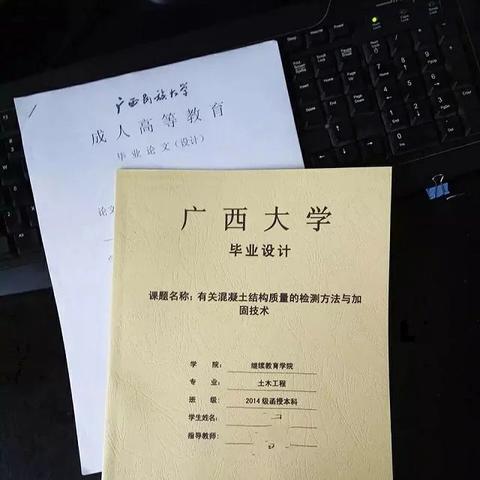 广西民族大学
成人高等教育
毕业论文(设计)
论文
广西大学
毕业设计
课题名称：有关混凝土结构质量的检测方法与加
固技术
学 院： 继续教育学院
专 业： 土木工程
班 级： 2014级函授本科
学生姓名：
指导教师：